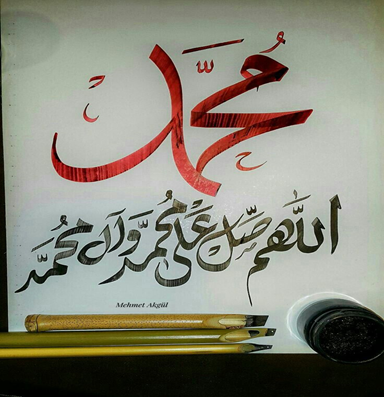 محمد
اللهم صل على محمد وآل محمد
Mehmet Akgül